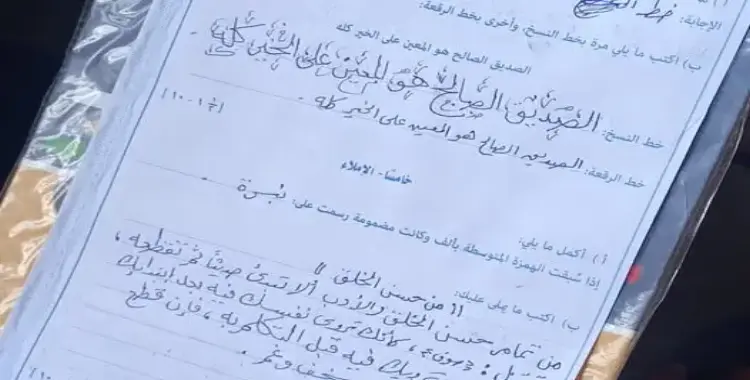 الإجابة: خط
ب) اكتب ما يلي مرة بخط النسخ، وأخرى بخط الرقعة:
الصديق الصالح هو المعين على الخير كله
خط النسخ: الصَّدِيقُ الصَّالِحُ هُوَ المُعِينُ عَلَى الخَيْرِ كُلِّهِ
خط الرقعة: الصديق الصالح هو المعين على الخير كله.
خامسًا- الإملاء
أ ) أكمل ما يلي:
إذا سُبقت الهمزة المتوسطة بألف وكانت مضمومة رسمت على: نبرة.
ب) اكتب ما يملى عليك: "من حسن الخلق"
من تمام حسن الخلق والأدب ألا تبتدئ حديثاً ثم تقطعه،
كأنك تروي نفسك فيه بعد ابتدائك
فيه قبل التكلم به، فإن قطع